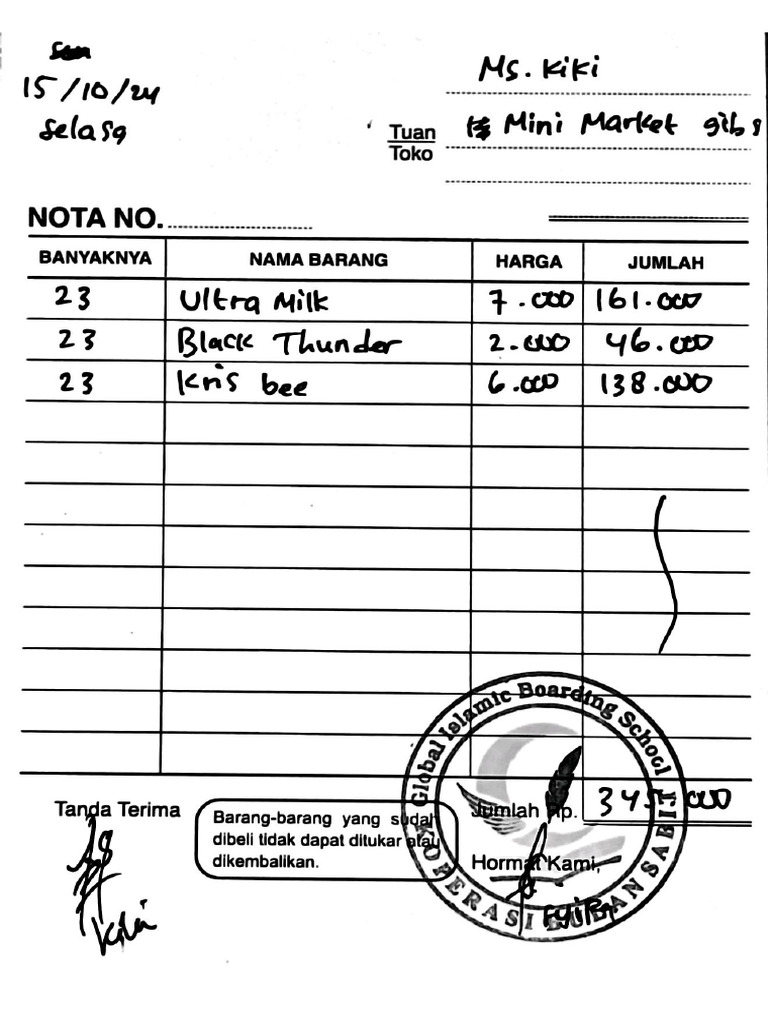 15/10/24
Selasa
Ms. Kiki
Tuan
Toko
Mini Market gibs
NOTA NO.
BANYAKNYA NAMA BARANG HARGA JUMLAH
23 Ultra Milk 7.000 161.000
23 Black Thunder 2.000 46.000
23 Kris bee 6.000 138.000
Global Islamic Boarding School
KOPERASI BULAN SABIT
Jumlah Rp. 345.000
Tanda Terima
Barang-barang yang sudah
dibeli tidak dapat ditukar atau
dikembalikan.
Hormat Kami,
Kiki